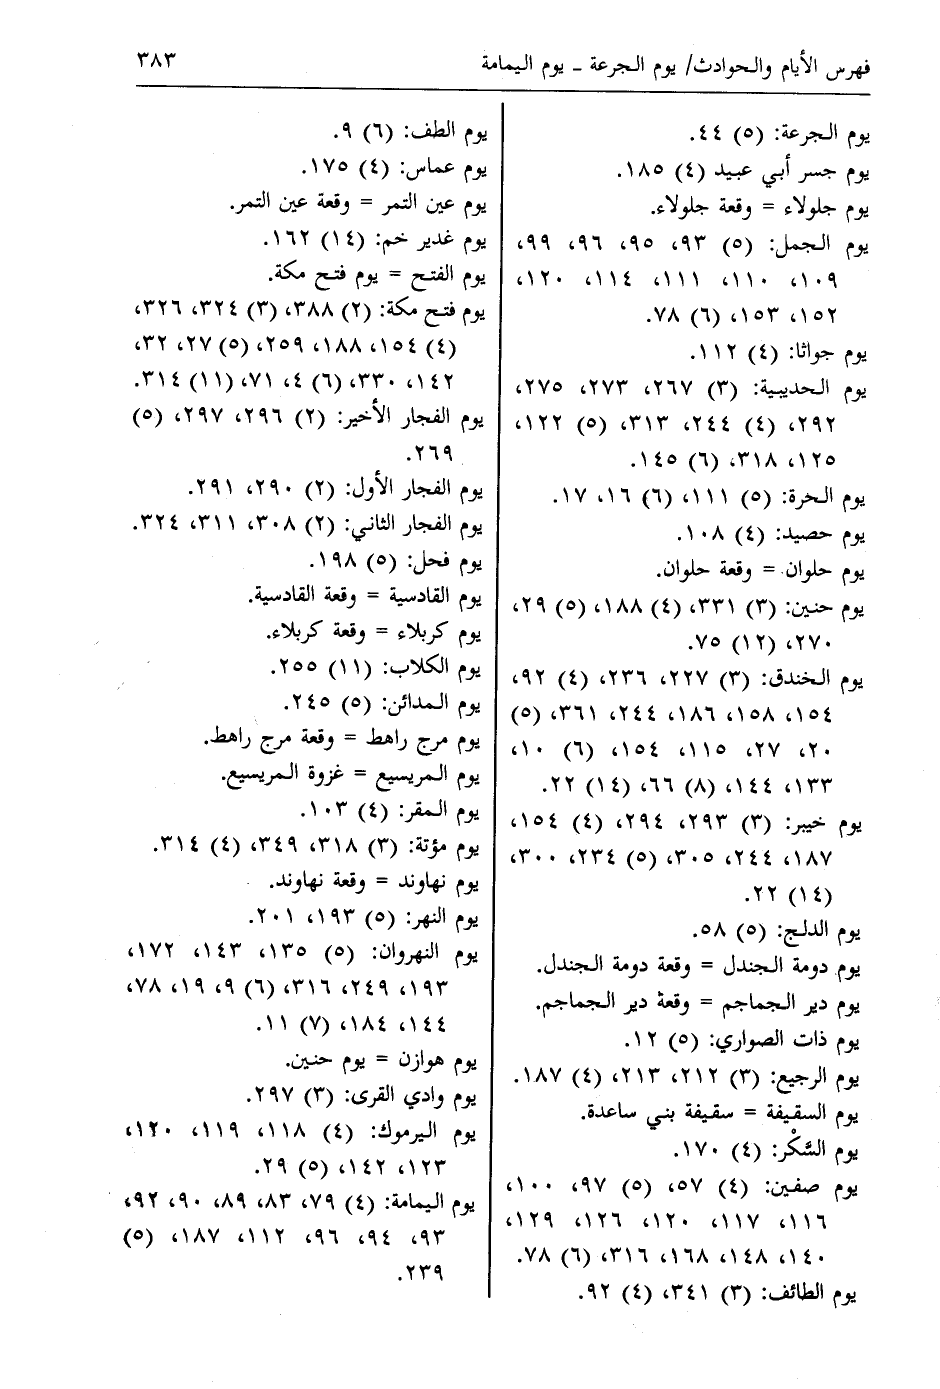 فهرس الأيام والحوادث/ يوم الجرعة ـ يوم اليمامة
٣٨٣
يوم الجرعة: (٥) ٤٤.
يوم جسر أبي عبيد (٤) ١٨٥.
يوم جلولاء = وقعة جلولاء.
يوم الجمل: (٥) ٩٣، ٩٥، ٩٦، ٩٩،
١٠٩، ١١٠، ١١١، ١١٤، ١٢٠،
١٥٢، ١٥٣، (٦) ٧٨.
يوم جواثا: (٤) ١١٢.
يوم الحديبية: (٣) ٢٦٧، ٢٧٣، ٢٧٥،
٢٩٢، (٤) ٢٤٤، ٣١٣، (٥) ١٢٢،
١٢٥، ٣١٨، (٦) ١٤٥.
يوم الحرة: (٥) ١١١، (٦) ١٦، ١٧.
يوم حصيد: (٤) ١٠٨.
يوم حلوان = وقعة حلوان.
يوم حنين: (٣) ٣٣١، (٤) ١٨٨، (٥) ٢٩،
٢٧٠، (١٢) ٧٥.
يوم الخندق: (٣) ٢٢٧، ٢٣٦، (٤) ٩٢،
١٥٤، ١٥٨، ١٨٦، ٢٤٤، ٣٦١، (٥)
٢٠، ٢٧، ١١٥، ١٥٤، (٦) ١٠،
١٣٣، ١٤٤، (٨) ٦٦، (١٤) ٢٢.
يوم خيبر: (٣) ٢٩٣، ٢٩٤، (٤) ١٥٤،
١٨٧، ٢٤٤، ٣٠٥، (٥) ٢٣٤، ٣٠٠،
(١٤) ٢٢.
يوم الدلج: (٥) ٥٨.
يوم دومة الجندل = وقعة دومة الجندل.
يوم دير الجماجم = وقعة دير الجماجم.
يوم ذات الصواري: (٥) ١٢.
يوم الرجيع: (٣) ٢١٢، ٢١٣، (٤) ١٨٧.
يوم السقيفة = سقيفة بني ساعدة.
يوم السَّكْر: (٤) ١٧٠.
يوم صفين: (٤) ٥٧، (٥) ٩٧، ١٠٠،
١١٦، ١١٧، ١٢٠، ١٢٦، ١٢٩،
١٤٠، ١٤٨، ١٦٨، ٣١٦، (٦) ٧٨.
يوم الطائف: (٣) ٣٤١، (٤) ٩٢.
يوم الطف: (٦) ٩.
يوم عماس: (٤) ١٧٥.
يوم عين التمر = وقعة عين التمر.
يوم غدير خم: (١٤) ١٦٢.
يوم الفتح = يوم فتح مكة.
يوم فتح مكة: (٢) ٣٨٨، (٣) ٣٢٤، ٣٢٦،
(٤) ١٥٤، ١٨٨، ٢٥٩، (٥) ٢٧، ٣٢،
١٤٢، ٣٣٠، (٦) ٤، ٧١، (١١) ٣١٤.
يوم الفجار الأخير: (٢) ٢٩٦، ٢٩٧، (٥)
٢٦٩.
يوم الفجار الأول: (٢) ٢٩٠، ٢٩١.
يوم الفجار الثاني: (٢) ٣٠٨، ٣١١، ٣٢٤.
يوم فحل: (٥) ١٩٨.
يوم القادسية = وقعة القادسية.
يوم كربلاء = وقعة كربلاء.
يوم الكلاب: (١١) ٢٥٥.
يوم المدائن: (٥) ٢٤٥.
يوم مرج راهط = وقعة مرج راهط.
يوم المريسيع = غزوة المريسيع.
يوم المقر: (٤) ١٠٣.
يوم مؤتة: (٣) ٣١٨، ٣٤٩، (٤) ٣١٤.
يوم نهاوند = وقعة نهاوند.
يوم النهر: (٥) ١٩٣، ٢٠١.
يوم النهروان: (٥) ١٣٥، ١٤٣، ١٧٢،
١٩٣، ٢٤٩، ٣١٦، (٦) ٩، ١٩، ٧٨،
١٤٤، ١٨٤، (٧) ١١.
يوم هوازن = يوم حنين.
يوم وادي القرى: (٣) ٢٩٧.
يوم اليرموك: (٤) ١١٨، ١١٩، ١٢٠،
١٢٣، ١٤٢، (٥) ٢٩.
يوم اليمامة: (٤) ٧٩، ٨٣، ٨٩، ٩٠، ٩٢،
٩٣، ٩٤، ٩٦، ١١٢، ١٨٧، (٥)
٢٣٩.